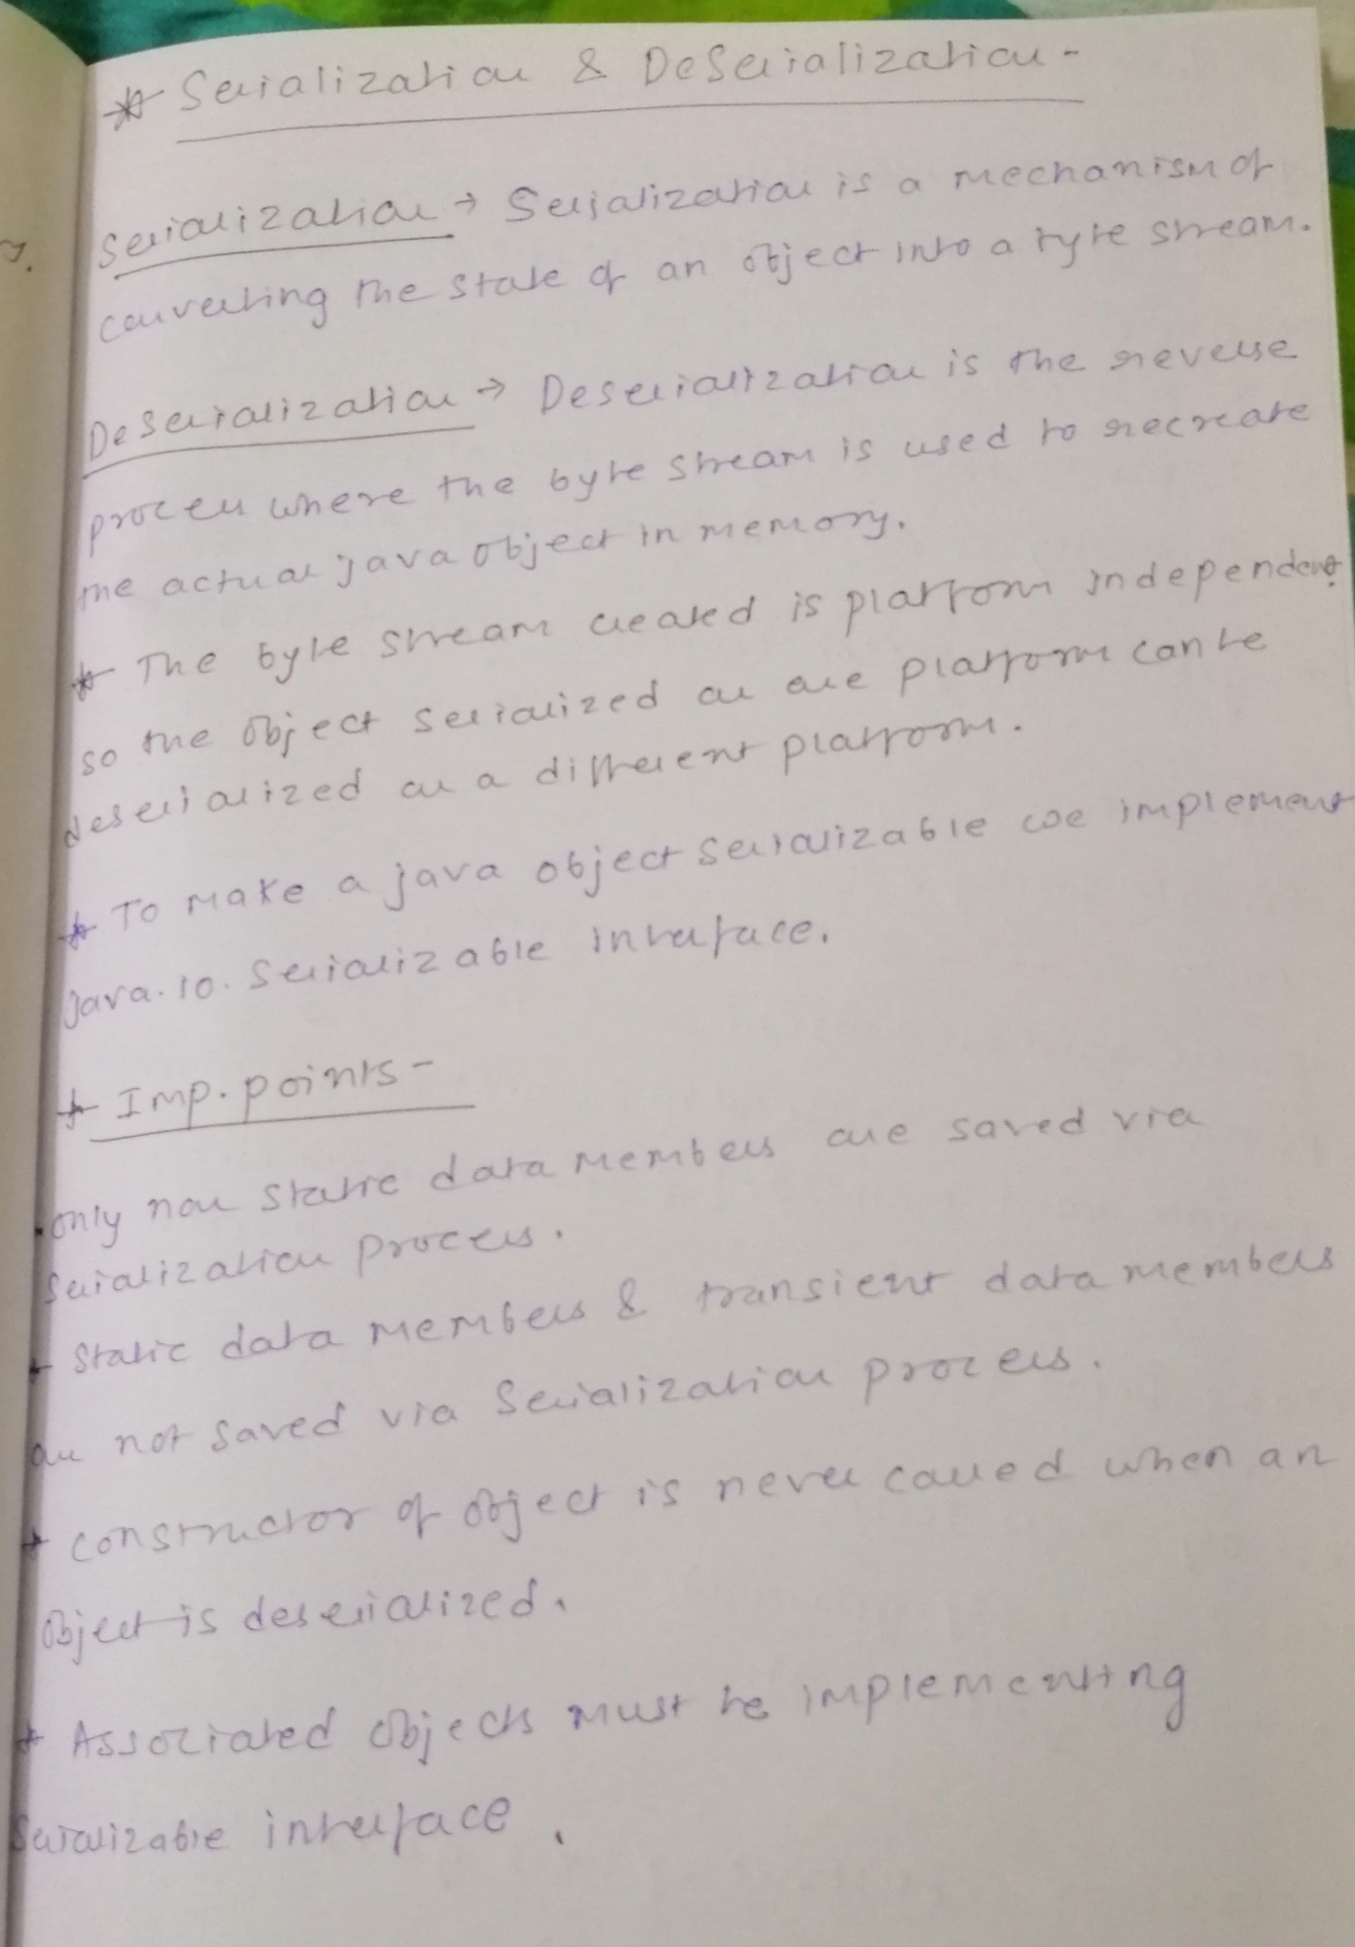 * Serialization & DeSerialization -
Serialization → Serialization is a mechanism of
converting the state of an object into a byte stream.
DeSerialization → Deserialization is the reverse
process where the byte stream is used to recreate
the actual java object in memory.
* The byte stream created is platform independent.
so the object serialized on one platform can be
deserialized on a different platform.
* To make a java object serializable we implement
java.io.Serializable interface.
* Imp. points -
• only non static data members are saved via
serialization process.
* Static data members & transient data members
are not saved via Serialization process.
* constructor of object is never called when an
object is deserialized.
* Associated objects must be implementing
Serializable interface.